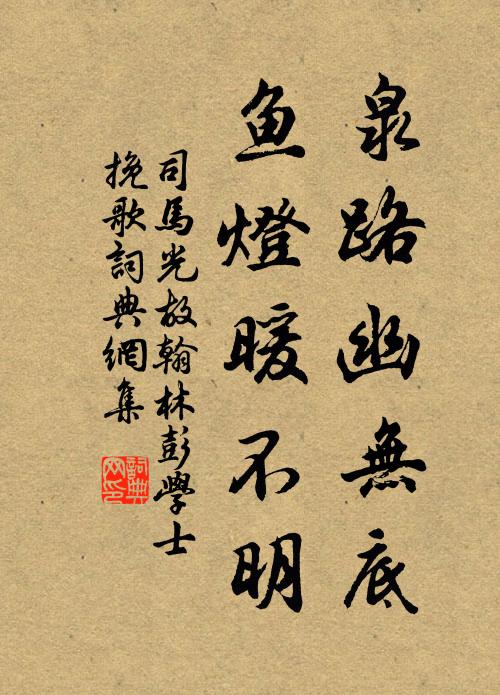 泉路幽無底
鱼燈暖不明
司馬光故翰林彭學士
挽歌詞典網集
詞典
网印